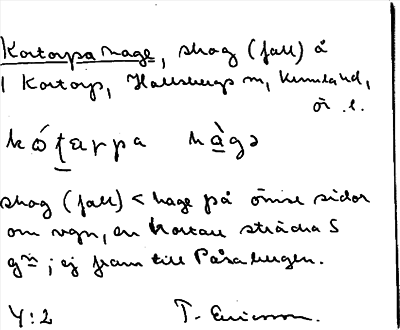 Kortorpa hage, skog (fall) å
1 Kortorp, Hallsbergs sn, Kumla hd,
Ör. l.
kó̱ṭarpa hà̱gə
skog (fall) < hage på ömse sidor
om vägen, en kortare sträcka S
gdn; ej fram till Påsabergen.
4:2 T. Ericsson.